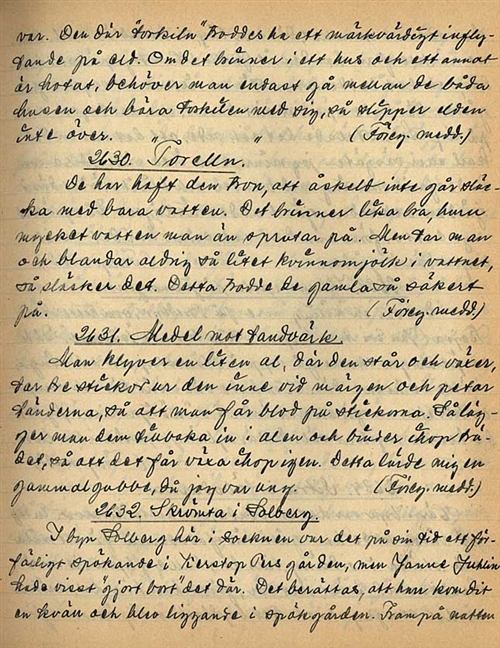 var. Den där "torkiln" troddes ha ett märkvärdigt infly-
tande på eld. Om det brinner i ett hus och ett annat
är hotat, behöver man endast gå mellan de båda
husen och bära torkilen med sig, så slipper elden
inte över. (Föreg. medd.)
2630. "Torelln."
De har haft den tron, att åskeld inte går släc-
ka med bara vatten. Det brinner lika bra, huru
mycket vatten man än sprutar på. Men tar man
och blandar aldrig så litet kvinnomjölk i vattnet,
så släcker det. Detta trodde de gamla så säkert
på. (Föreg. medd.)
2631. Medel mot tandvärk.
Man klyver en liten al, där den står och växer,
tar tre stickor ur den inne vid märgen och petar
tänderna, så att man får blod på stickorna. Så läg-
ger man dem tillbaka in i alen och binder ihop trä-
det, så att det får växa ihop igen. Detta lärde mig en
gammal gubbe, då jag var ung. (Föreg. medd.)
2632. Skrömta i Solberg.
I byn Solberg här i socknen var det på sin tid ett för-
färligt spökande i Pers gården, men Janne
hade visst "gjort bort" det där. Det berättas, att hur kom dit
en kväll och blev liggande i spökgården. Frampå natten